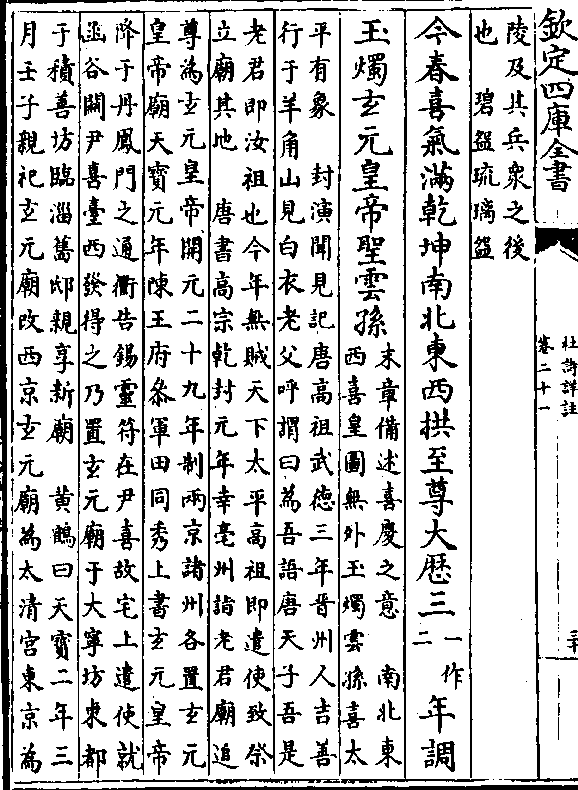 欽定四庫全書
杜詩詳註
卷二十一
三十
陵及其兵衆之後
也　碧盌琉璃盌
今春喜氣滿乾坤南北東西拱至尊大歷三一作二年調
玉燭玄元皇帝聖雲孫末章備述喜慶之意　南北東
西喜皇圖無外玉燭雲孫喜太
平有象　封演聞見記唐高祖武德三年晉州人吉善
行于羊角山見白衣老父呼謂曰為吾語唐天子吾是
老君即汝祖也今年無賊天下太平高祖即遣使致祭
立廟其地　唐書高宗乾封元年幸亳州詣老君廟追
尊為玄元皇帝開元二十九年制兩京諸州各置玄元
皇帝廟天寶元年陳王府叅軍田同秀上書玄元皇帝
降于丹鳳門之通衢告錫靈符在尹喜故宅上遣使就
函谷關尹喜臺西發得之乃置玄元廟于大寧坊東都
于積善坊臨淄舊邸親享新廟　黄鶴曰天寶二年三
月壬子親祀玄元廟改西京玄元廟為太清宫東京為